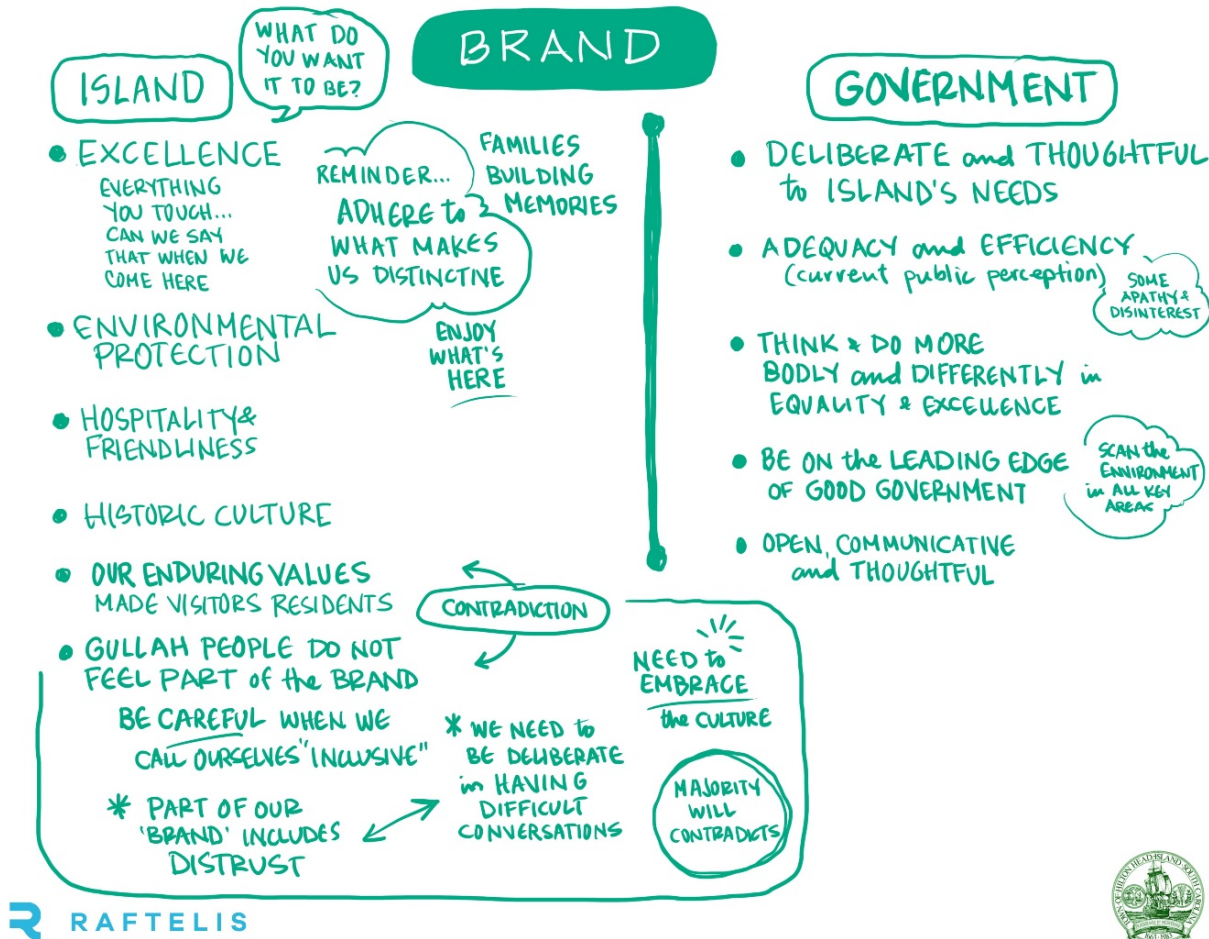 BRAND
WHAT DO
YOU WANT
IT TO BE?
ISLAND
• EXCELLENCE
EVERYTHING
YOU TOUCH...
CAN WE SAY
THAT WHEN WE
COME HERE
REMINDER...
ADHERE to
WHAT MAKES
US DISTINCTIVE
FAMILIES
BUILDING
MEMORIES
ENJOY
WHAT'S
HERE
• ENVIRONMENTAL
PROTECTION
• HOSPITALITY &
FRIENDLINESS
• HISTORIC CULTURE
• OUR ENDURING VALUES
MADE VISITORS RESIDENTS
CONTRADICTION
• GULLAH PEOPLE DO NOT
FEEL PART of the BRAND
BE CAREFUL WHEN WE
CALL OURSELVES "INCLUSIVE"
* PART OF OUR
'BRAND' INCLUDES
DISTRUST
* WE NEED to
BE DELIBERATE
in HAVING
DIFFICULT
CONVERSATIONS
NEED to
EMBRACE
the CULTURE
MAJORITY
WILL
CONTRADICTS
GOVERNMENT
• DELIBERATE and THOUGHTFUL
to ISLAND'S NEEDS
• ADEQUACY and EFFICIENCY
(current public perception)
SOME
APATHY &
DISINTEREST
• THINK & DO MORE
BODLY and DIFFERENTLY in
EQUALITY & EXCELLENCE
• BE ON the LEADING EDGE
OF GOOD GOVERNMENT
SCAN the
ENVIRONMENT
in ALL KEY
AREAS
• OPEN, COMMUNICATIVE
and THOUGHTFUL
RAFTELIS
TOWN OF HILTON HEAD ISLAND SOUTH CAROLINA
1663-1983